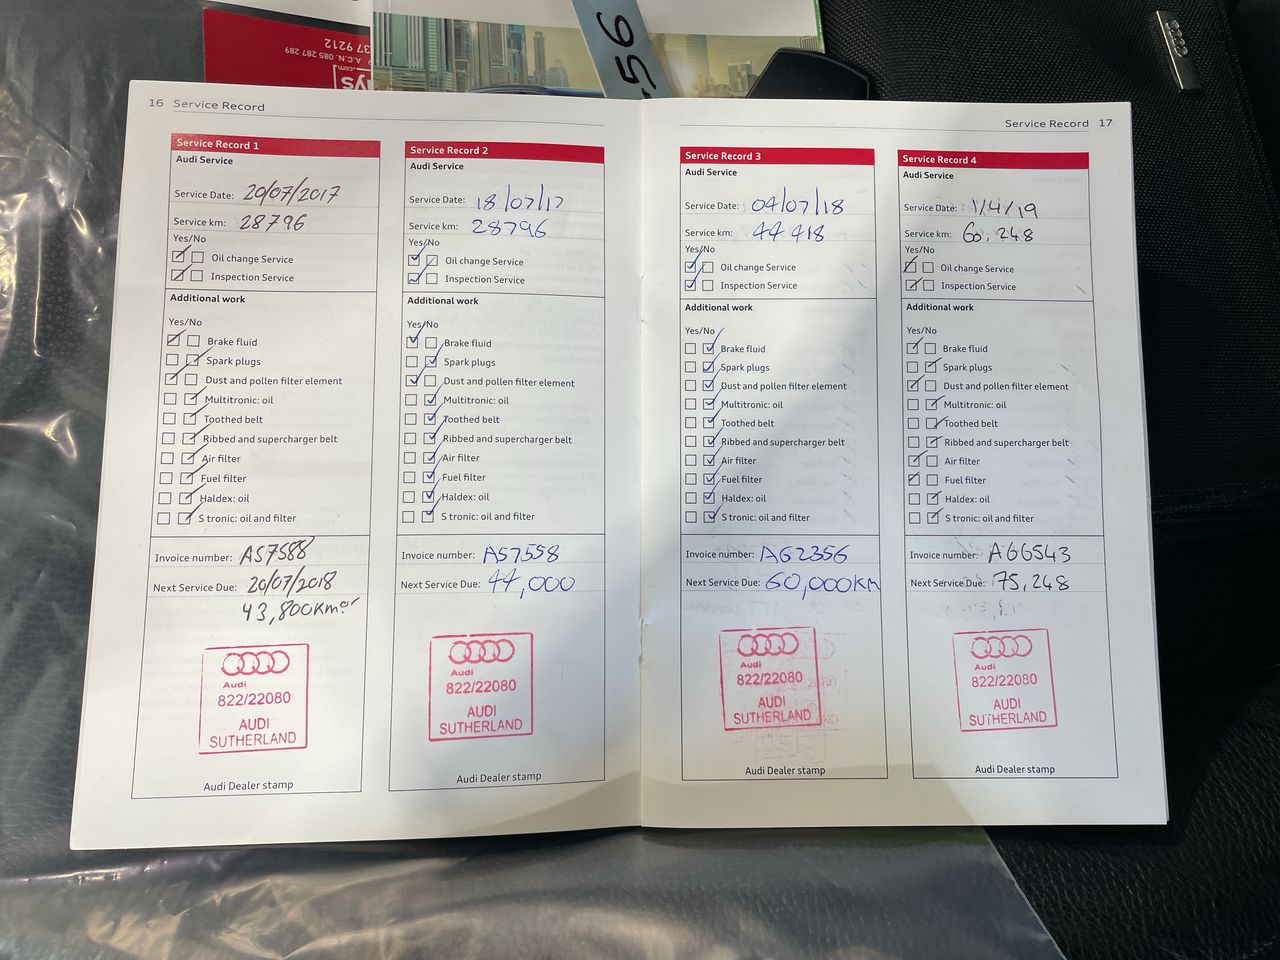 A.C.N. 085 287 289
37 9212
ys
.com
456
16 Service Record
Service Record 1
Audi Service
Service Date: 20/07/2017
Service km: 28796
Yes/No
Oil change Service
Inspection Service
Additional work
Yes/No
Brake fluid
Spark plugs
Dust and pollen filter element
Multitronic: oil
Toothed belt
Ribbed and supercharger belt
Air filter
Fuel filter
Haldex: oil
S tronic: oil and filter
Invoice number: A57588
Next Service Due: 20/07/2018
43,800km or
Audi
822/22080
AUDI
SUTHERLAND
Audi Dealer stamp
Service Record 2
Audi Service
Service Date: 18/07/17
Service km: 28796
Yes/No
Oil change Service
Inspection Service
Additional work
Yes/No
Brake fluid
Spark plugs
Dust and pollen filter element
Multitronic: oil
Toothed belt
Ribbed and supercharger belt
Air filter
Fuel filter
Haldex: oil
S tronic: oil and filter
Invoice number: A57558
Next Service Due: 44,000
Audi
822/22080
AUDI
SUTHERLAND
Audi Dealer stamp
Service Record 17
Service Record 3
Audi Service
Service Date: 04/07/18
Service km: 44418
Yes/No
Oil change Service
Inspection Service
Additional work
Yes/No
Brake fluid
Spark plugs
Dust and pollen filter element
Multitronic: oil
Toothed belt
Ribbed and supercharger belt
Air filter
Fuel filter
Haldex: oil
S tronic: oil and filter
Invoice number: A62356
Next Service Due: 60,000km
Audi
822/22080
AUDI
SUTHERLAND
Audi Dealer stamp
Service Record 4
Audi Service
Service Date: 1/4/19
Service km: 60,248
Yes/No
Oil change Service
Inspection Service
Additional work
Yes/No
Brake fluid
Spark plugs
Dust and pollen filter element
Multitronic: oil
Toothed belt
Ribbed and supercharger belt
Air filter
Fuel filter
Haldex: oil
S tronic: oil and filter
Invoice number: A66543
Next Service Due: 75,248
Audi
822/22080
AUDI
SUTHERLAND
Audi Dealer stamp